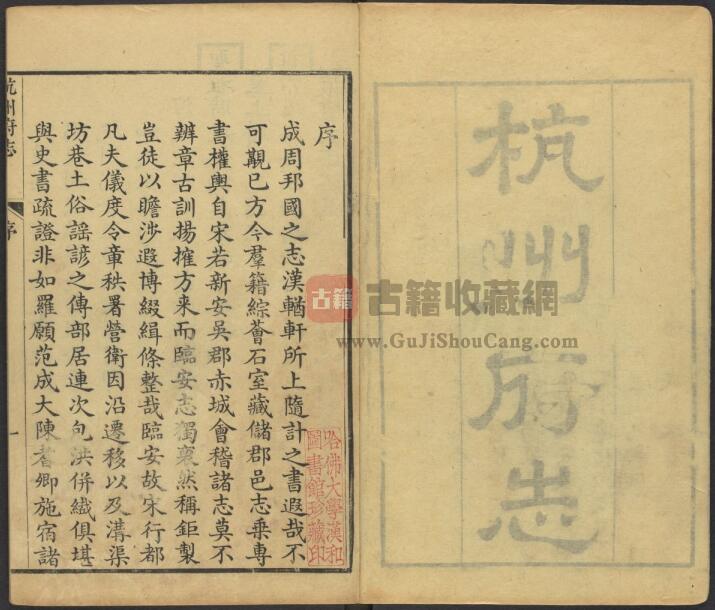 杭州府志
序
成周邦國之志漢輶軒所上隨計之書遐哉不
可覯已方今羣籍綜薈石室藏儲郡邑志乘專
書權輿自宋若新安吳郡赤城會稽諸志莫不
辨章古訓揚搉方来而臨安志獨裒然稱鉅製
豈徒以瞻涉遐博綴緝條整哉臨安故宋行都
凡夫儀度令章秩署營衛因沿遷移以及溝渠
坊巷土俗謡諺之傳部居連次包洪併纎俱堪
與史書疏證非如羅願范成大陳耆卿施宿諸
杭州府志
序
一
哈佛大學漢和
圖書館珍藏印
古籍
古籍收藏網
www.GuJiShouCang.com